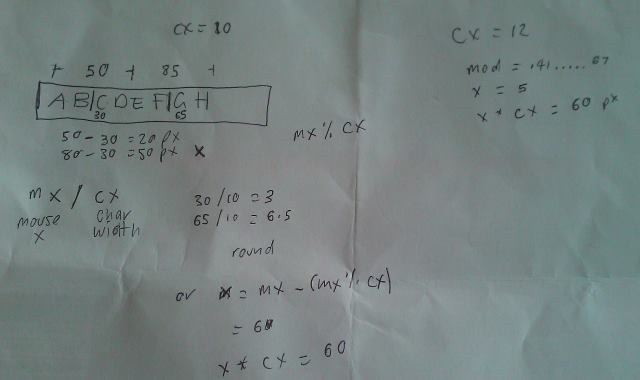 cx = 10
+ 50 + 85 +
A B|C D E F|G H
30 65
50 - 30 = 20 px
80 - 30 = 50 px x
mx % cx
mx / cx
mouse char
x width
30/10 = 3
65/10 = 6.5
round
or = mx - (mx % cx)
= 60
x * cx = 60
cx = 12
mod = .41.....67
x = 5
x * cx = 60 px